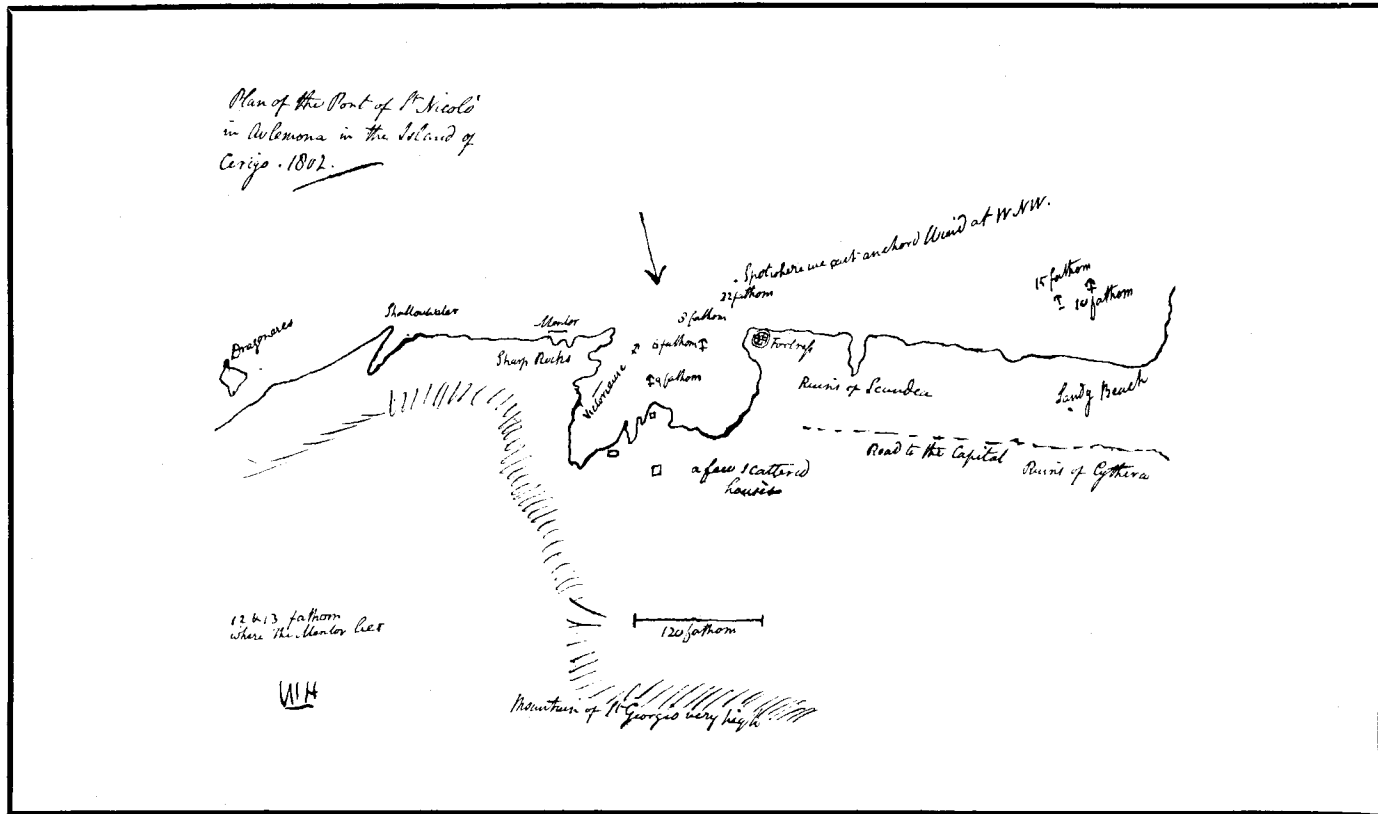 Plan of the Port of St Nicolò
in Avlemona in the Island of
Cerigo . 1802.
. Spot where we cast anchord Wind at W.NW.
22 fathom
15 fathom
10 fathom
8 fathom
Shallowwater
Mentor
Dragoneres
Sharp Rocks
6 fathom
Fortress
9 fathom
Victorieuse
Ruins of Scandea
Sandy Beach
Road to the Capital
Ruins of Cythera
a few scattered
houses
12 & 13 fathom
where the Mentor lies
120 fathom
WH
Mountain of St Georgio very high